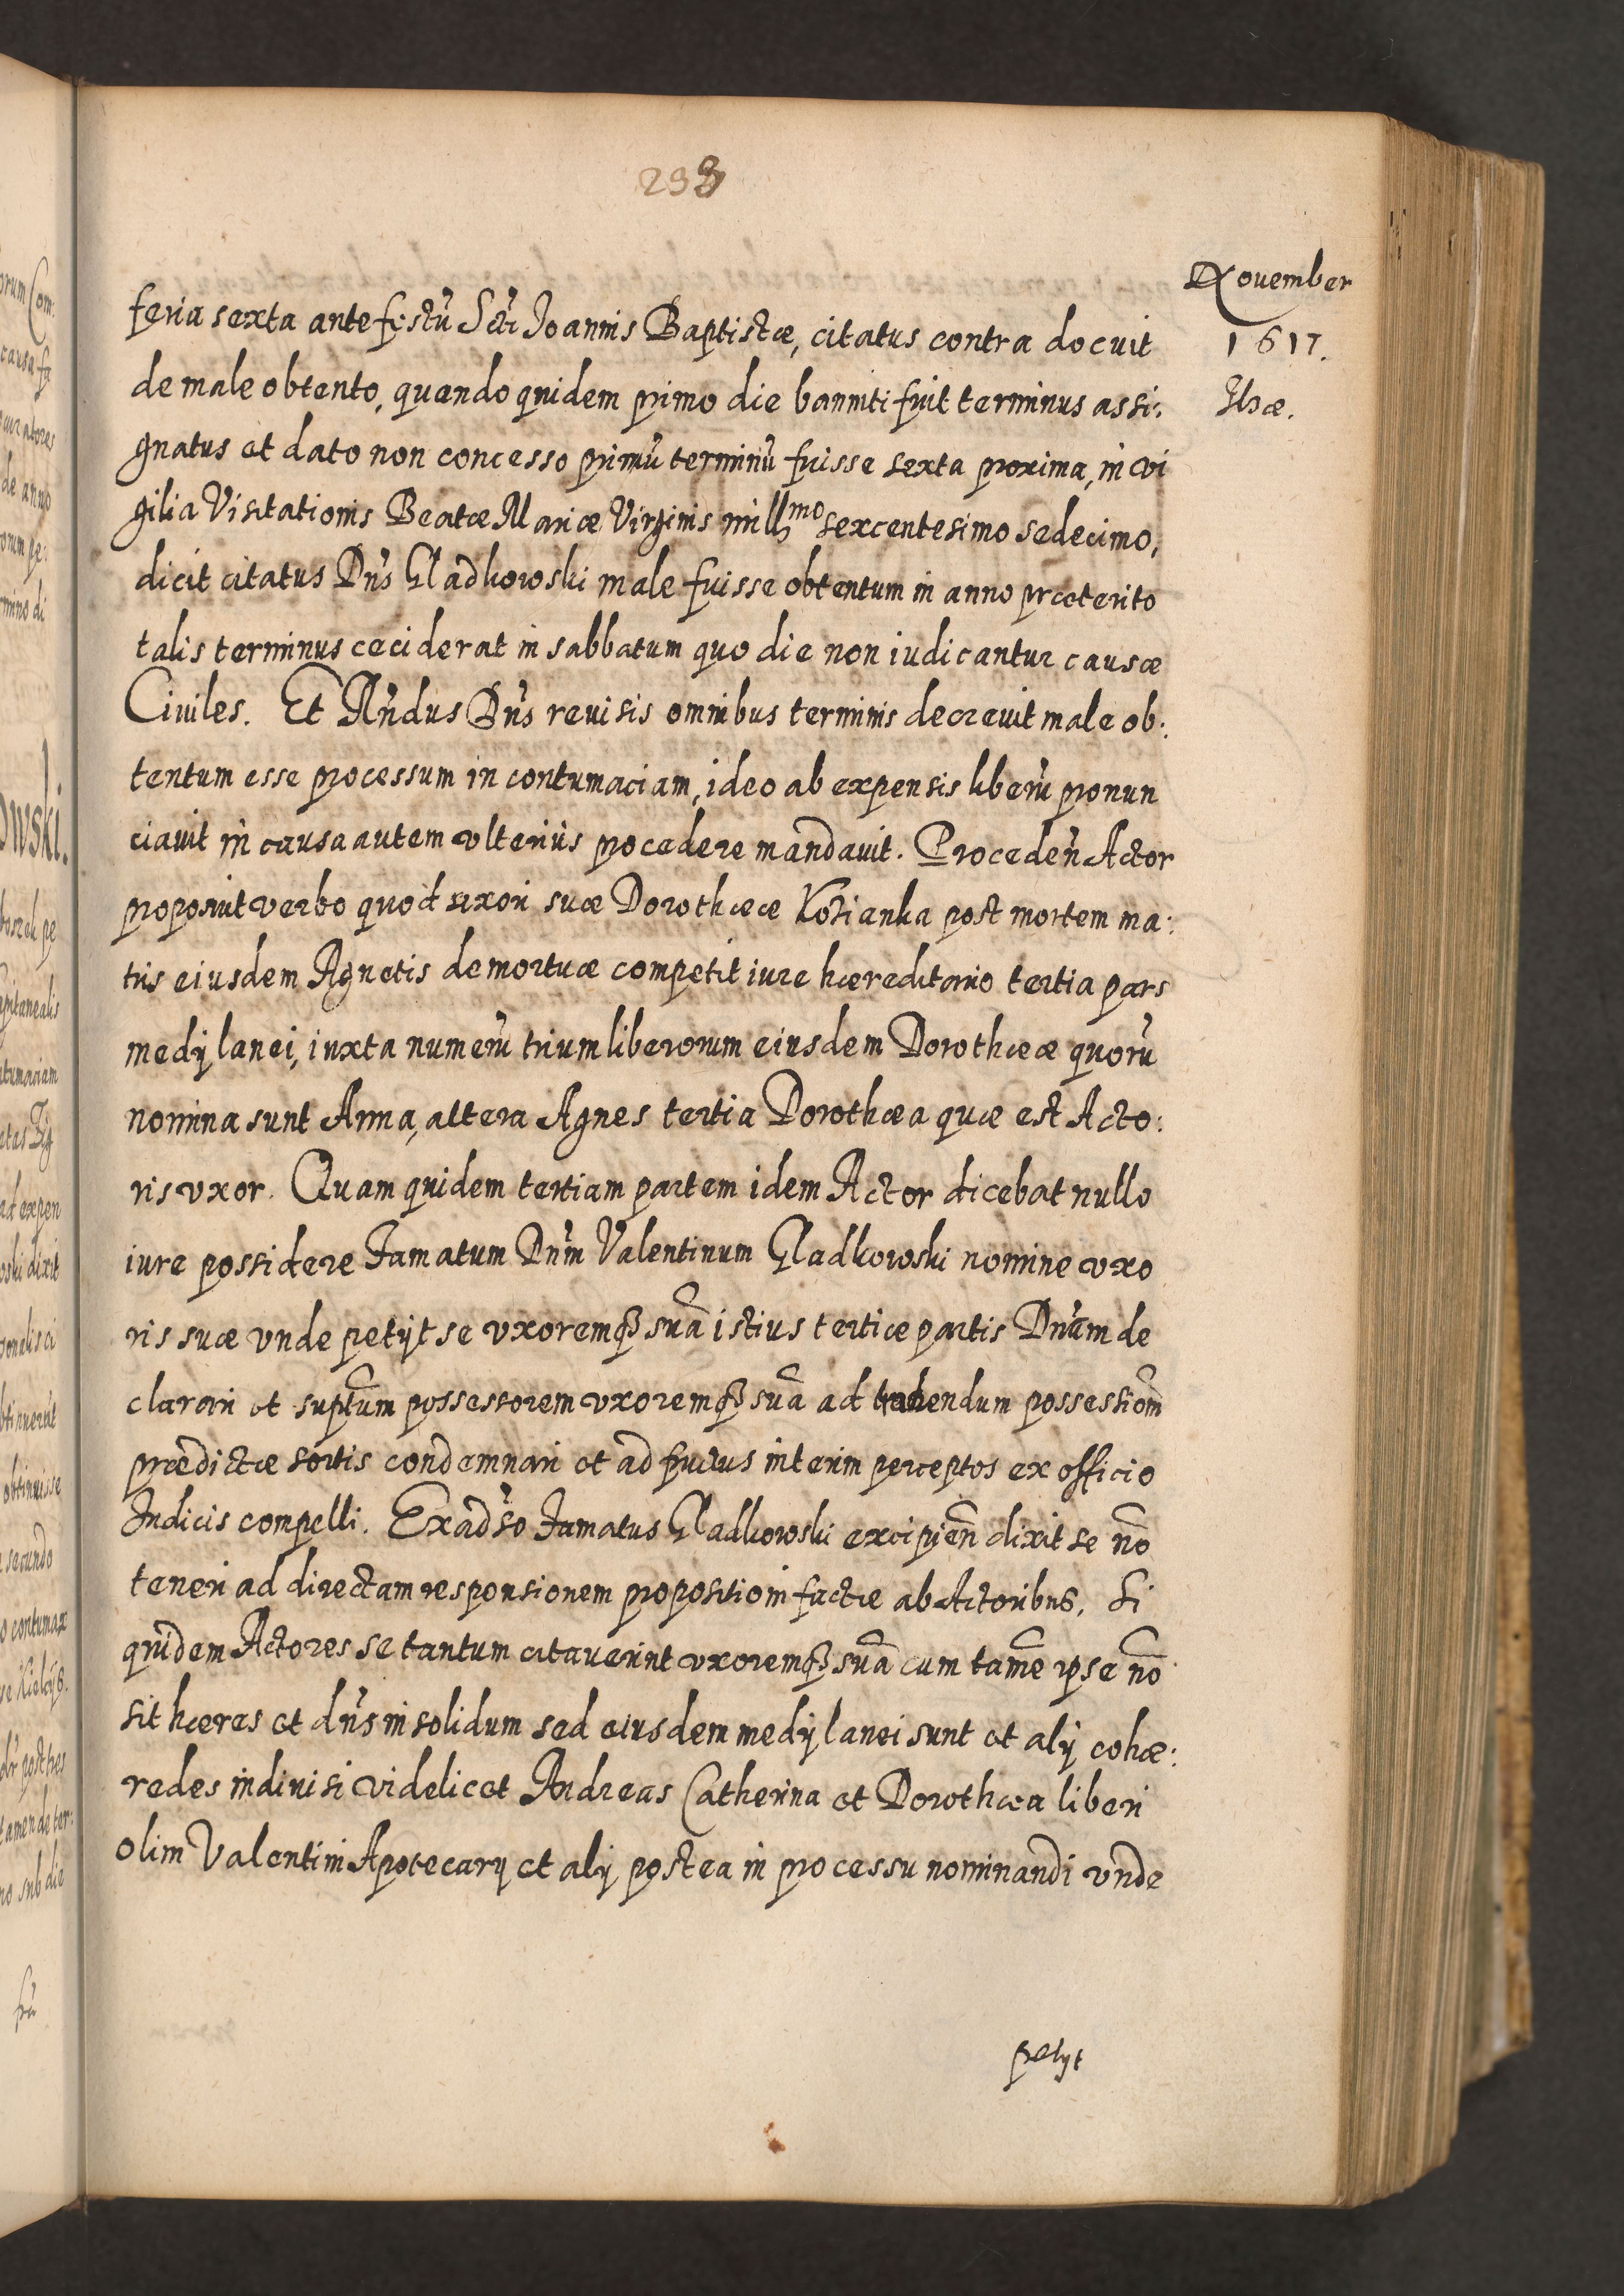 298
Nouember
1617.
Ilzæ.
feria sexta ante festũ Scti Joannis Baptistæ, citatus contra docuit
de male obtento, quando quidem primo die banniti fuit terminus assi:
gnatus et dato non concesso primũ terminũ fuisse sexta proxima, in vi
gilia Visitationis Beatæ Mariæ Virginis mill͠mo sexcentesimo sedecimo,
dicit citatus Dñs Gladkowski male fuisse obtentum in anno præterito
talis terminus ceciderat in sabbatum quo die non iudicantur causæ
Ciuiles. Et Rñdus Dñs reuisis omnibus terminis decreuit male ob:
tentum esse processum in contumaciam, ideo ab expensis liberũ pronun
ciauit in causa autem vlterius procedere mandauit. Proceden̄ Actor
proposuit verbo quod uxori suæ Dorothææ Kosianka post mortem ma:
tris eiusdem Agnetis demortuæ competit iure hæreditario tertia pars
medij lanei, iuxta numerũ trium liberorum eiusdem Dorothææ quorũ
nomina sunt Anna, altera Agnes tertia Dorothæa quæ est Acto:
ris vxor. Quam quidem tertiam partem idem Actor dicebat nullo
iure possidere Famatum Dñm Valentinum Gladkowski nomine vxo
ris suæ vnde petijt se vxoremqȝ suã istius tertiæ partis Dnãm de
clarari et suptum possessorem vxoremqȝ suã ad tradendum possession̄
prædictæ sortis condemnari et ad fructus interim perceptos ex officio
Judicis compelli. Exad̃so Famatus Gladkowski excipien̄ dixit se nõ
teneri ad directam responsionem proposition̄i factæ ab Actoribus, Si
quidem Actores se tantum citauerint vxoremqȝ suã cum tamẽ ipse nõ
sit hæres et dñs in solidum sed eiusdem medij lanei sunt et alij cohæ:
redes indiuisi videlicet Andreas Catherina et Dorothæa liberi
olim Valentini Apotecarij et alij postea in processu nominandi vnde
petijt